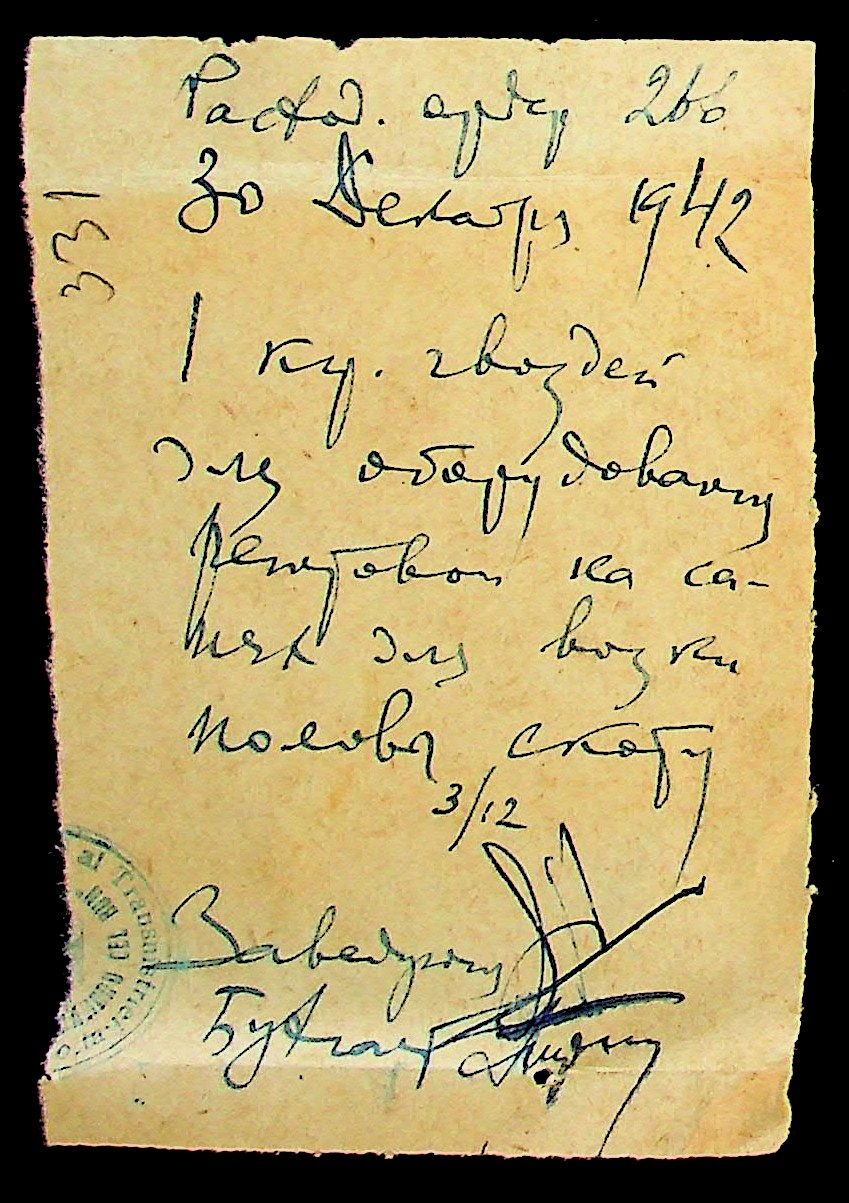 Расход. ордер 266
30 Декабря 1942
331
1 кгр. гвоздей
для оборудования
решетовой на са-
нях для возки
половы скоту
3/12
Заведующий
Бухгалтер
al Transnistriei